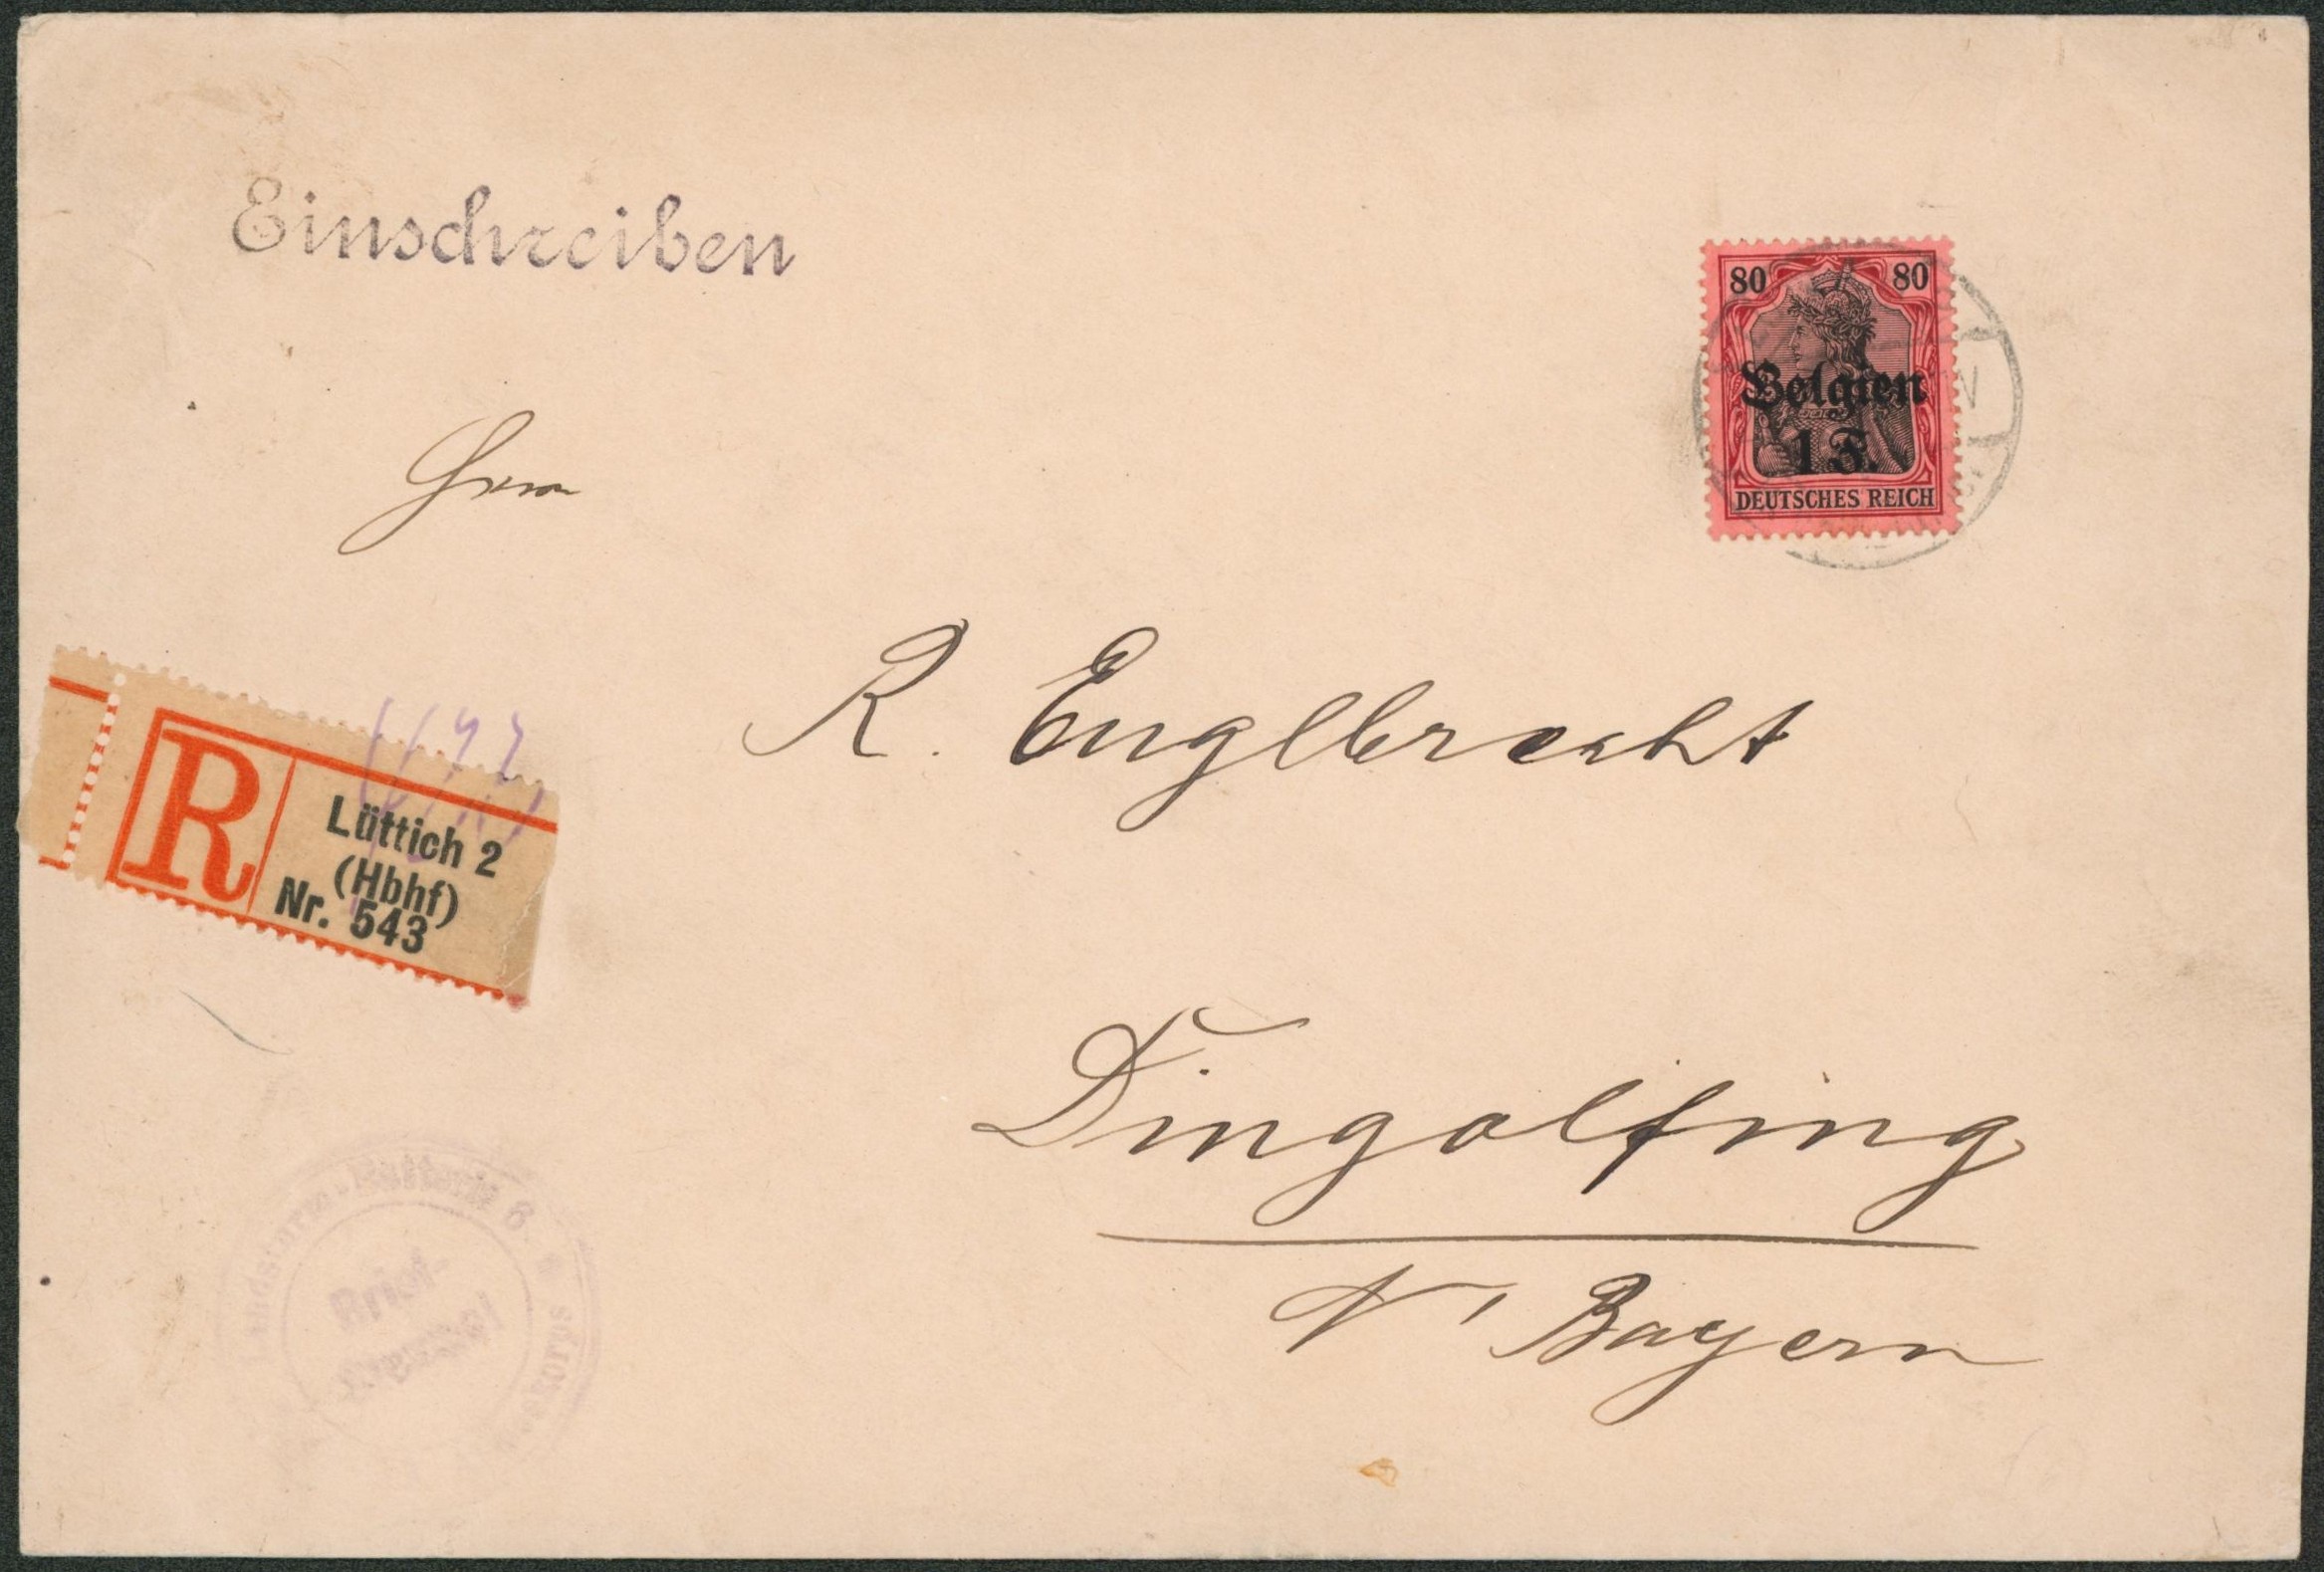 Einschreiben
80 80
Belgien
1 F.
DEUTSCHES REICH
Herrn
R. Englbrecht
R
Lüttich 2
(Hbhf)
Nr. 543
Dingolfing
N' Bayern
Landsturm-Batterie 8.
Brief-
stempel